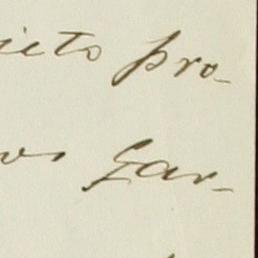 icto pro-
os Gar-